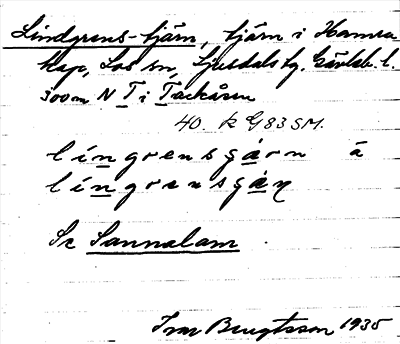 Lindgrens-tjärn, tjärn i Hamra
kap, Los sn, Ljusdals tg. Gävleb. l.
300 m N T i Tackåsen
40. k G 83 SM.
língrensgárn à
língrensgáṇ
Se Sannalam.
Ivar Bengtsson 1935